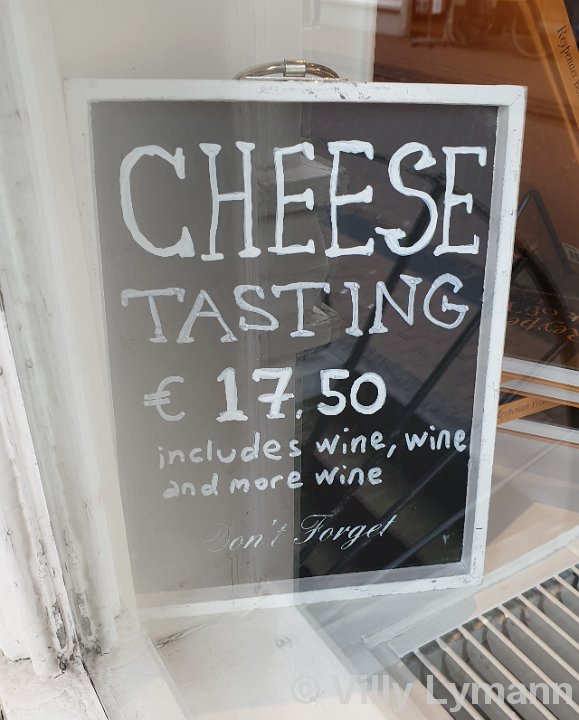 CHEESE
TASTING
€ 17.50
includes wine, wine
and more wine
Don't Forget
Reypenaer
© Villy Lymann